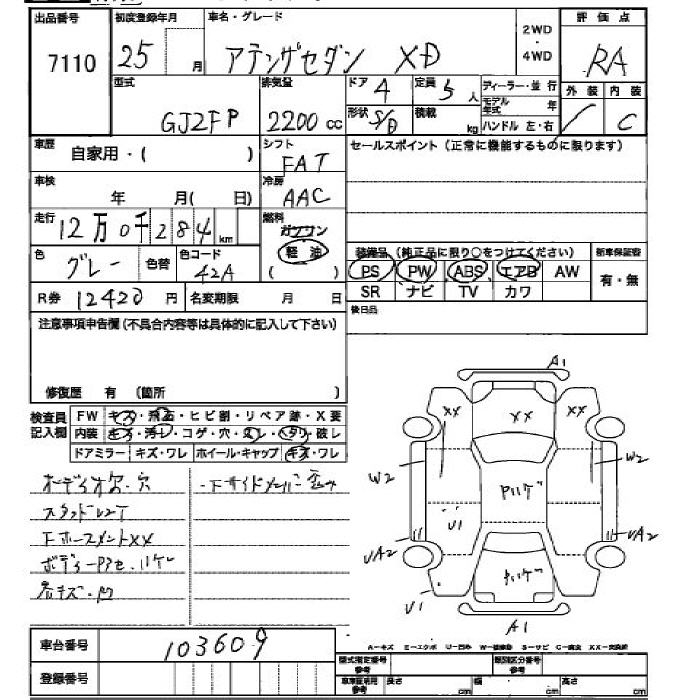 出品番号 初度登録年月 車名・グレード 2WD・4WD 評価点
7110 25 月 アテンザセダン XD RA
型式 排気量 ドア 4 定員 5 人 ディーラー・並行 外装 内装
GJ2FP 2200 cc 形状 S/D 積載 kg モデル年式 年 / C
ハンドル 左・右
車歴 自家用・( ) シフト FAT セールスポイント(正常に機能するものに限ります)
車検 年 月( 日) 冷房 AAC
走行 12万0千284 km 燃料 ガソリン 軽油 ( )
色 グレー 色替 色コード 42A
装備品(純正品に限り○をつけてください) 新車保証書
PS PW ABS エアB AW 有・無
SR ナビ TV カワ
R券 12420 円 名変期限 月 日
後日品
注意事項申告欄(不具合内容等は具体的に記入して下さい)
修復歴 有 (箇所 )
検査員記入欄
FW キズ・飛石・ヒビ割・リペア跡・X要
内装 キズ・汚レ・コゲ・穴・スレ・ヘタリ・破レ
ドアミラー キズ・ワレ ホイール・キャップ キズ・ワレ
オーディオ欠.穴
スタッドレスT
FホースメントXX
ボディーPアセ.ハゲ
各キズ.凹
A1
XX XX XX
W2 Pハゲ W2
U1
UA2 UA2
Pハゲ
U1
A1
車台番号 103609
登録番号
A-キズ E-エクボ U-凹み W-補修跡 S-サビ C-腐食 XX-交換済
型式指定番号 参考 類別区分番号 参考
車庫証明用 参考 長さ cm 幅 cm 高さ cm